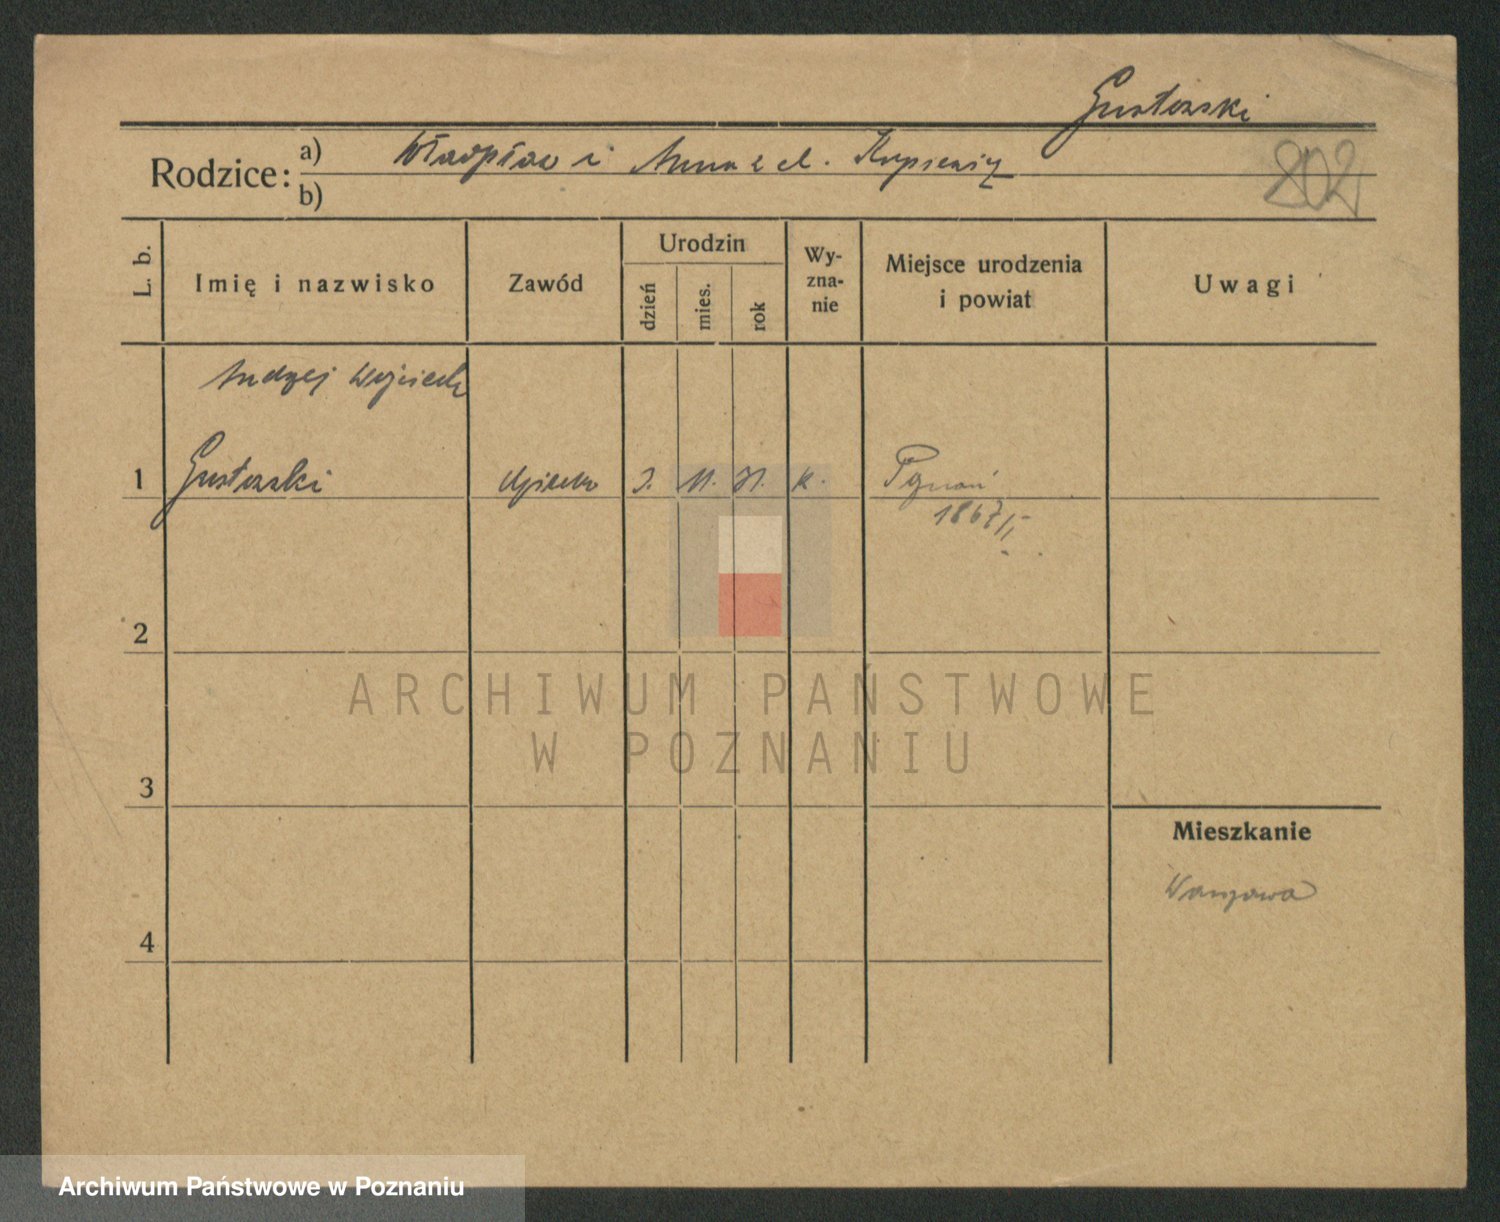 Gustowski
802
Rodzice: a) Władysław i Anna z d.
b)
L. b.
Imię i nazwisko
Zawód
Urodzin
dzień
mies.
rok
Wy-
zna-
nie
Miejsce urodzenia
i powiat
Uwagi
Andrzej Wojciech
1 Gustowski dziecko 3. 11. 31. k. Poznań
1867/II
2
3
4
Mieszkanie
Warszawa
ARCHIWUM PAŃSTWOWE
W POZNANIU
Archiwum Państwowe w Poznaniu